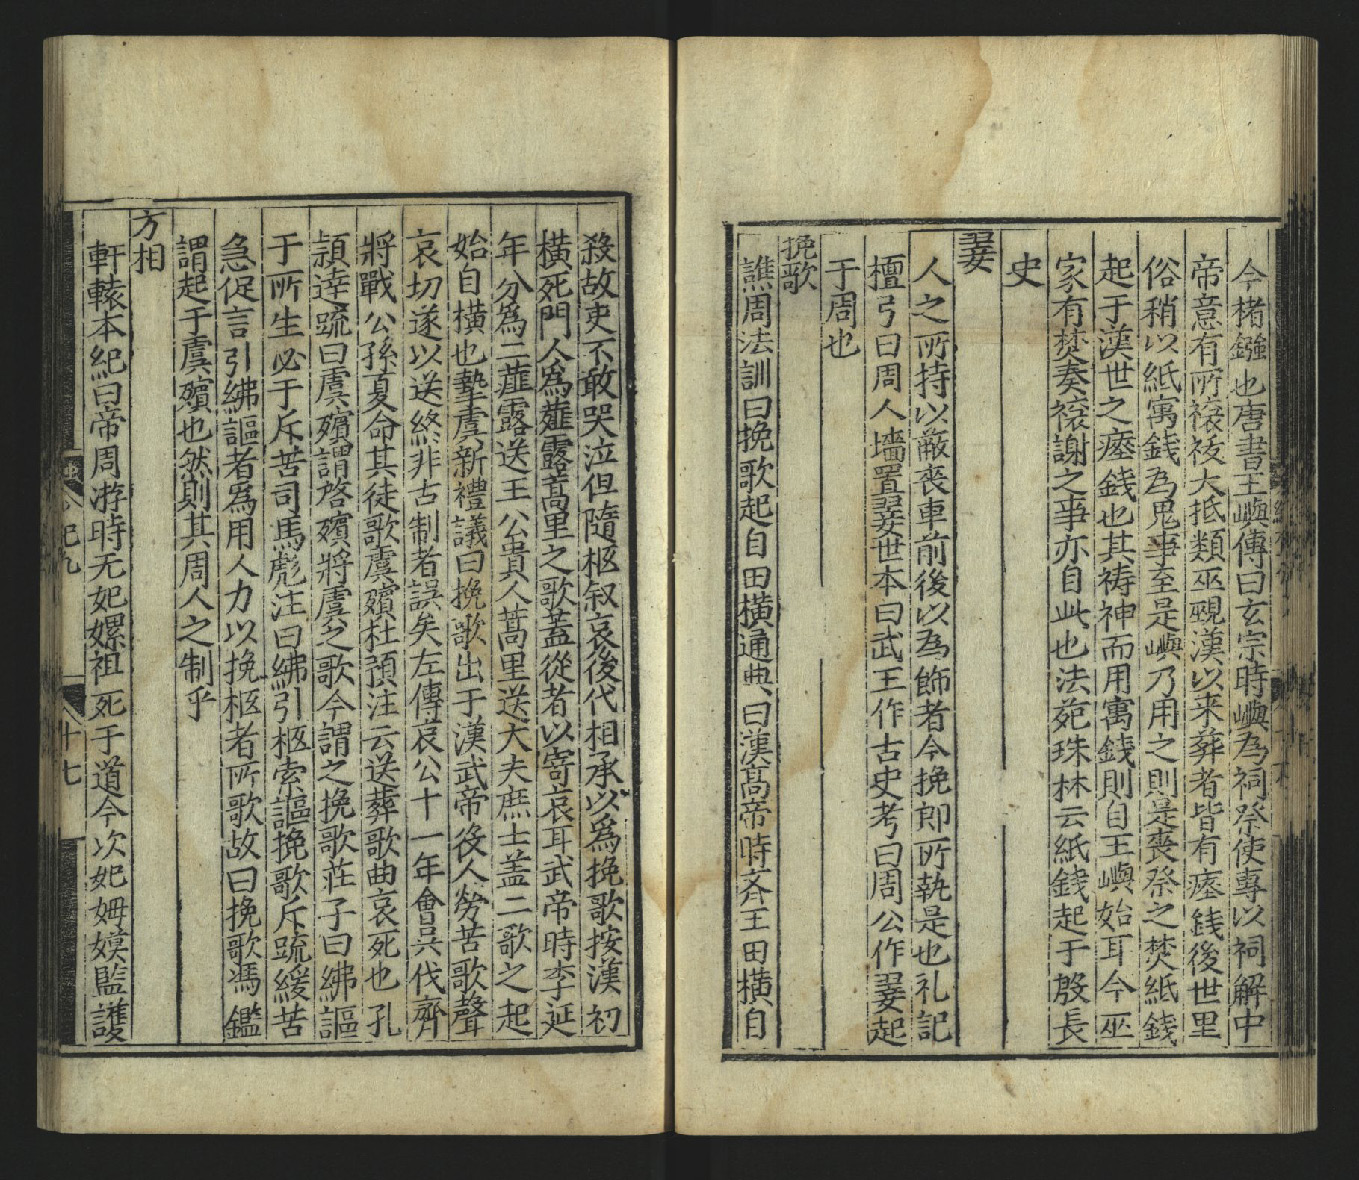 今楮鏹也唐書王嶼傳曰玄宗時嶼為祠祭使專以祠解中
帝意有所禳祓大抵類巫覡漢以来葬者皆有瘞錢後世里
俗稍以紙寓錢為鬼事至是嶼乃用之則是喪祭之焚紙錢
起于漢世之瘞錢也其祷神而用寓錢則自王嶼始耳今巫
家有焚奏禳謝之事亦自此也法苑珠林云紙錢起于殷長
史
翣
人之所持以蔽喪車前後以為飾者今挽郎所執是也礼記
檀弓曰周人墻置翣世本曰武王作古史考曰周公作翣起
于周也
挽歌
譙周法訓曰挽歌起自田横通典曰漢髙帝時斉王田横自
殺故吏不敢哭泣但隨柩叙哀後代相承以為挽歌按漢初
横死門人為薤露蒿里之歌蓋從者以寄哀耳武帝時李延
年分為二薤露送王公貴人蒿里送大夫庶士盖二歌之起
始自横也摯虞新禮議曰挽歌出于漢武帝役人勞苦歌聲
哀切遂以送終非古制者誤矣左傳哀公十一年會吳伐齊
將戰公孫夏命其徒歌虞殯杜預注云送葬歌曲哀死也孔
頴逹疏曰虞殯謂啓殯將虞之歌今謂之挽歌莊子曰紼謳
于所生必于斥苦司馬彪注曰紼引柩索謳挽歌斥疏緩苦
急促言引紼謳者為用人力以挽柩者所歌故曰挽歌馮鑑
謂起于虞殯也然則其周人之制乎
方相
軒轅本紀曰帝周游時元妃嫘祖死于道今次妃姆嫫監護
紀九
十七